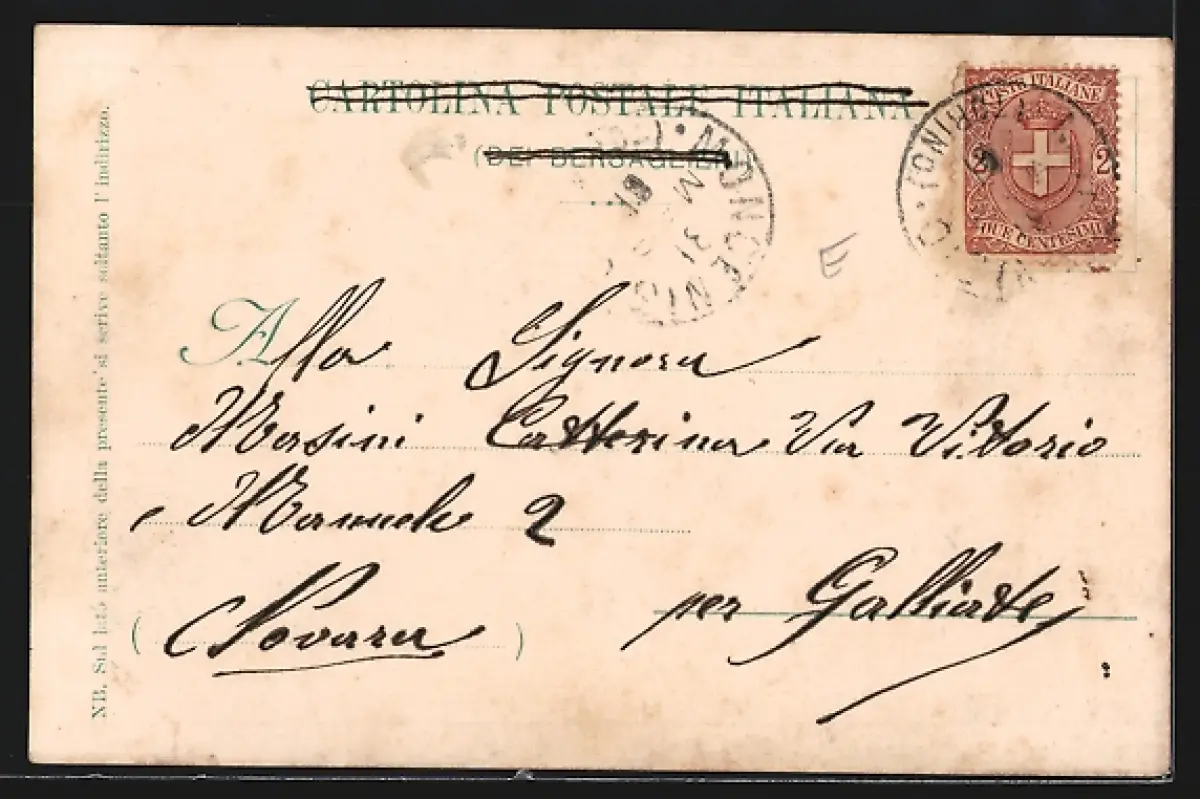 CARTOLINA POSTALE ITALIANA
(DEI BERSAGLIERI)
POSTE ITALIANE
2 2
DUE CENTESIMI
MONCENISIO
31
(TORINO)
E
Alla Signora
Masini Catterina Via Vittorio
Manuele 2
(Novara) per Galliate
NB. Sul lato anteriore della presente si scrive soltanto l'indirizzo.